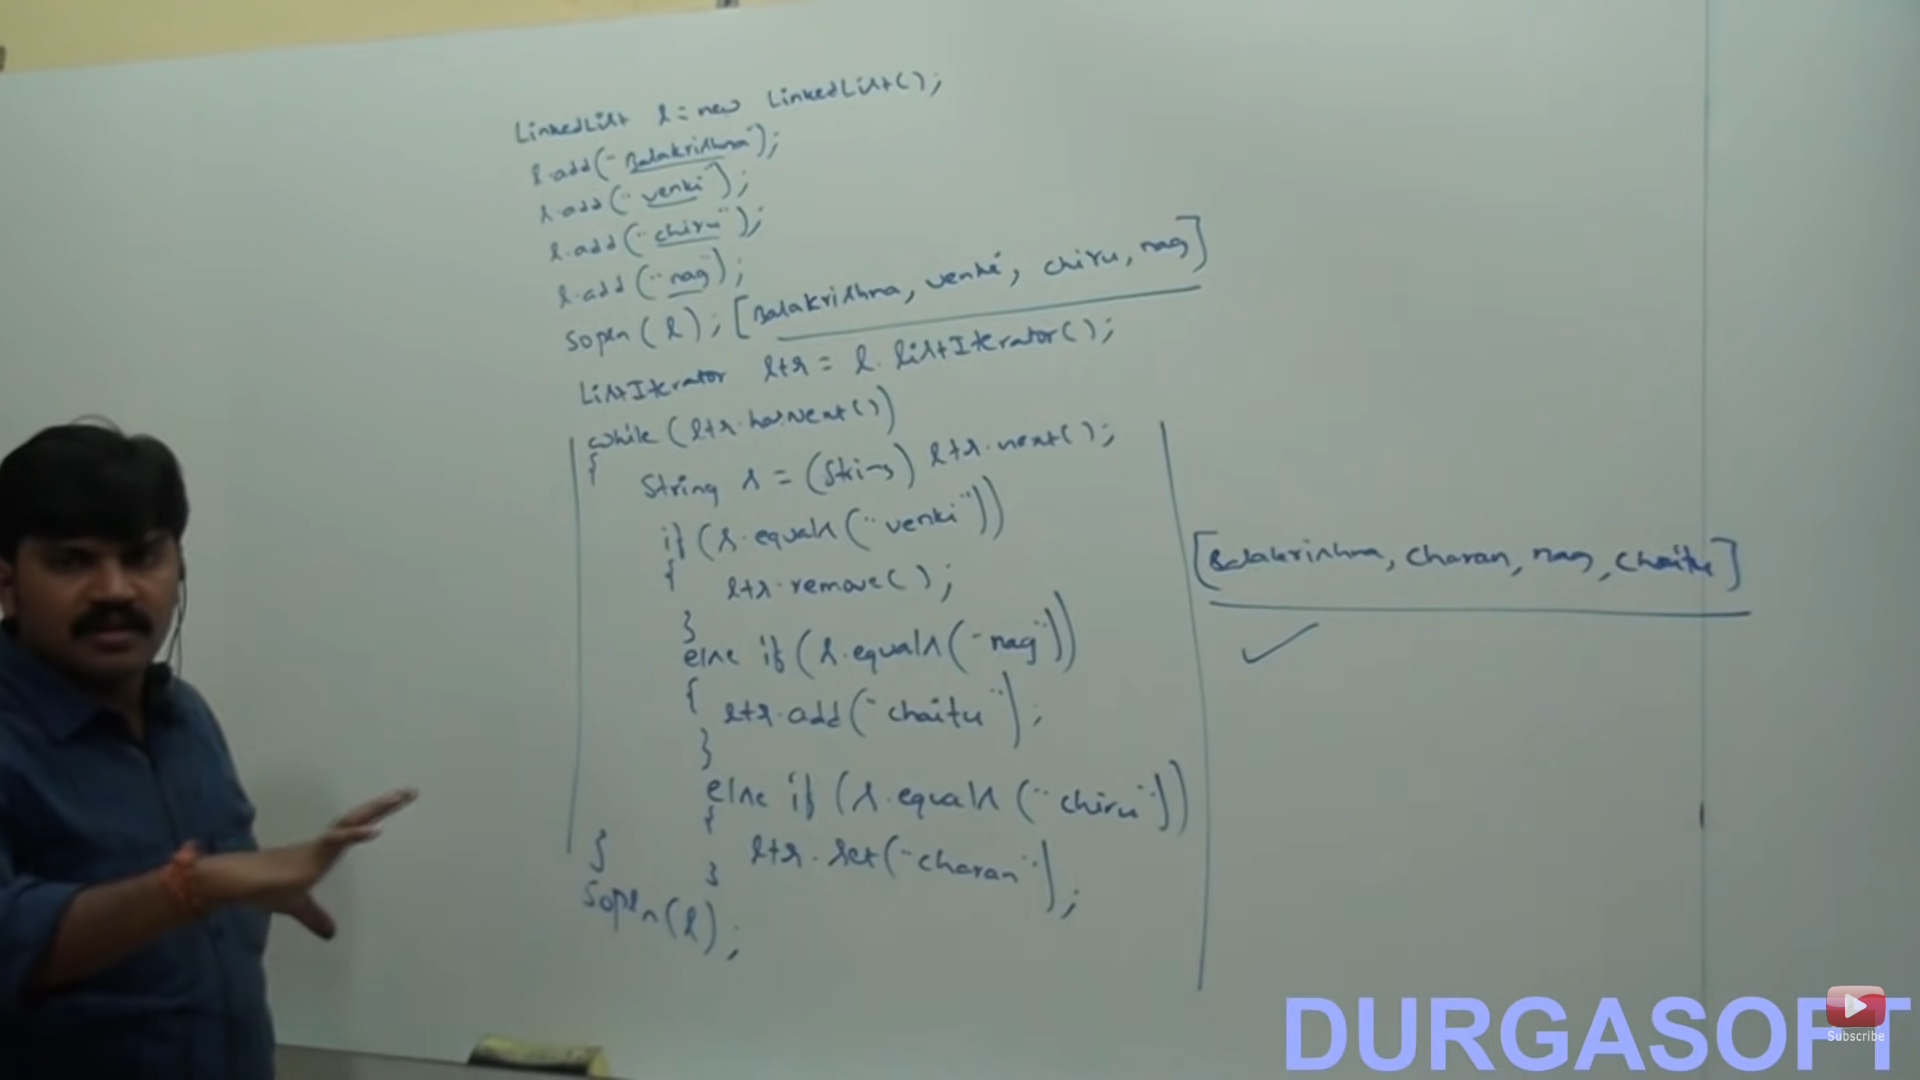 LinkedList l = new LinkedList();
l.add("Balakrishna");
l.add("venki");
l.add("chiru");
l.add("nag");
sopln(l); [Balakrishna, venki, chiru, nag]
ListIterator ltr = l.listIterator();
while (ltr.hasNext())
{
String s = (String) ltr.next();
if (s.equals("venki"))
{
ltr.remove();
}
else if (s.equals("nag"))
{ ltr.add("chaitu");
}
else if (s.equals("chiru"))
{
ltr.set("charan");
}
}
sopln(l);
[Balakrishna, charan, nag, chaitu]
DURGASOFT
Subscribe